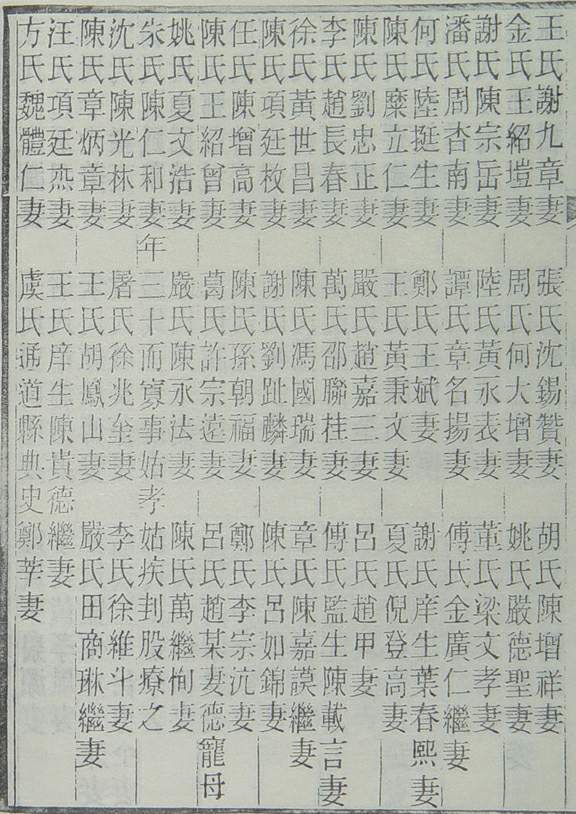 王氏謝九章妻　張氏沈錫贊妻　胡氏陳增祥妻
金氏王紹塏妻　周氏何大增妻　姚氏嚴德聖妻
謝氏陳宗岳妻　陸氏黃永表妻　董氏梁文孝妻
潘氏周杏南妻　譚氏章名揚妻　傅氏金廣仁繼妻
何氏陸挺生妻　鄭氏王斌妻　謝氏庠生葉春熙妻
陳氏糜立仁妻　王氏黃秉文妻　夏氏倪登高妻
陳氏劉忠正妻　嚴氏趙嘉三妻　呂氏趙甲妻
李氏趙長春妻　萬氏邵聯桂妻　傅氏監生陳載言妻
徐氏黃世昌妻　陳氏馮國瑞妻　章氏陳嘉謨繼妻
陳氏項廷枚妻　謝氏劉趾麟妻　陳氏呂如錦妻
任氏陳增高妻　陳氏孫朝福妻　鄭氏李宗沆妻
陳氏王紹曾妻　葛氏許宗遠妻　呂氏趙某妻德寵母
姚氏夏文浩妻　嚴氏陳永法妻　陳氏萬繼恂妻
朱氏陳仁和妻年三十而寡事姑孝姑疾刲股療之
沈氏陳光林妻　屠氏徐兆奎妻　李氏徐維斗妻
陳氏章炳章妻　王氏胡鳳山妻　嚴氏田商琳繼妻
汪氏項廷烝妻　王氏庠生陳貴德繼妻
方氏魏體仁妻　虞氏通道縣典史鄭莘妻